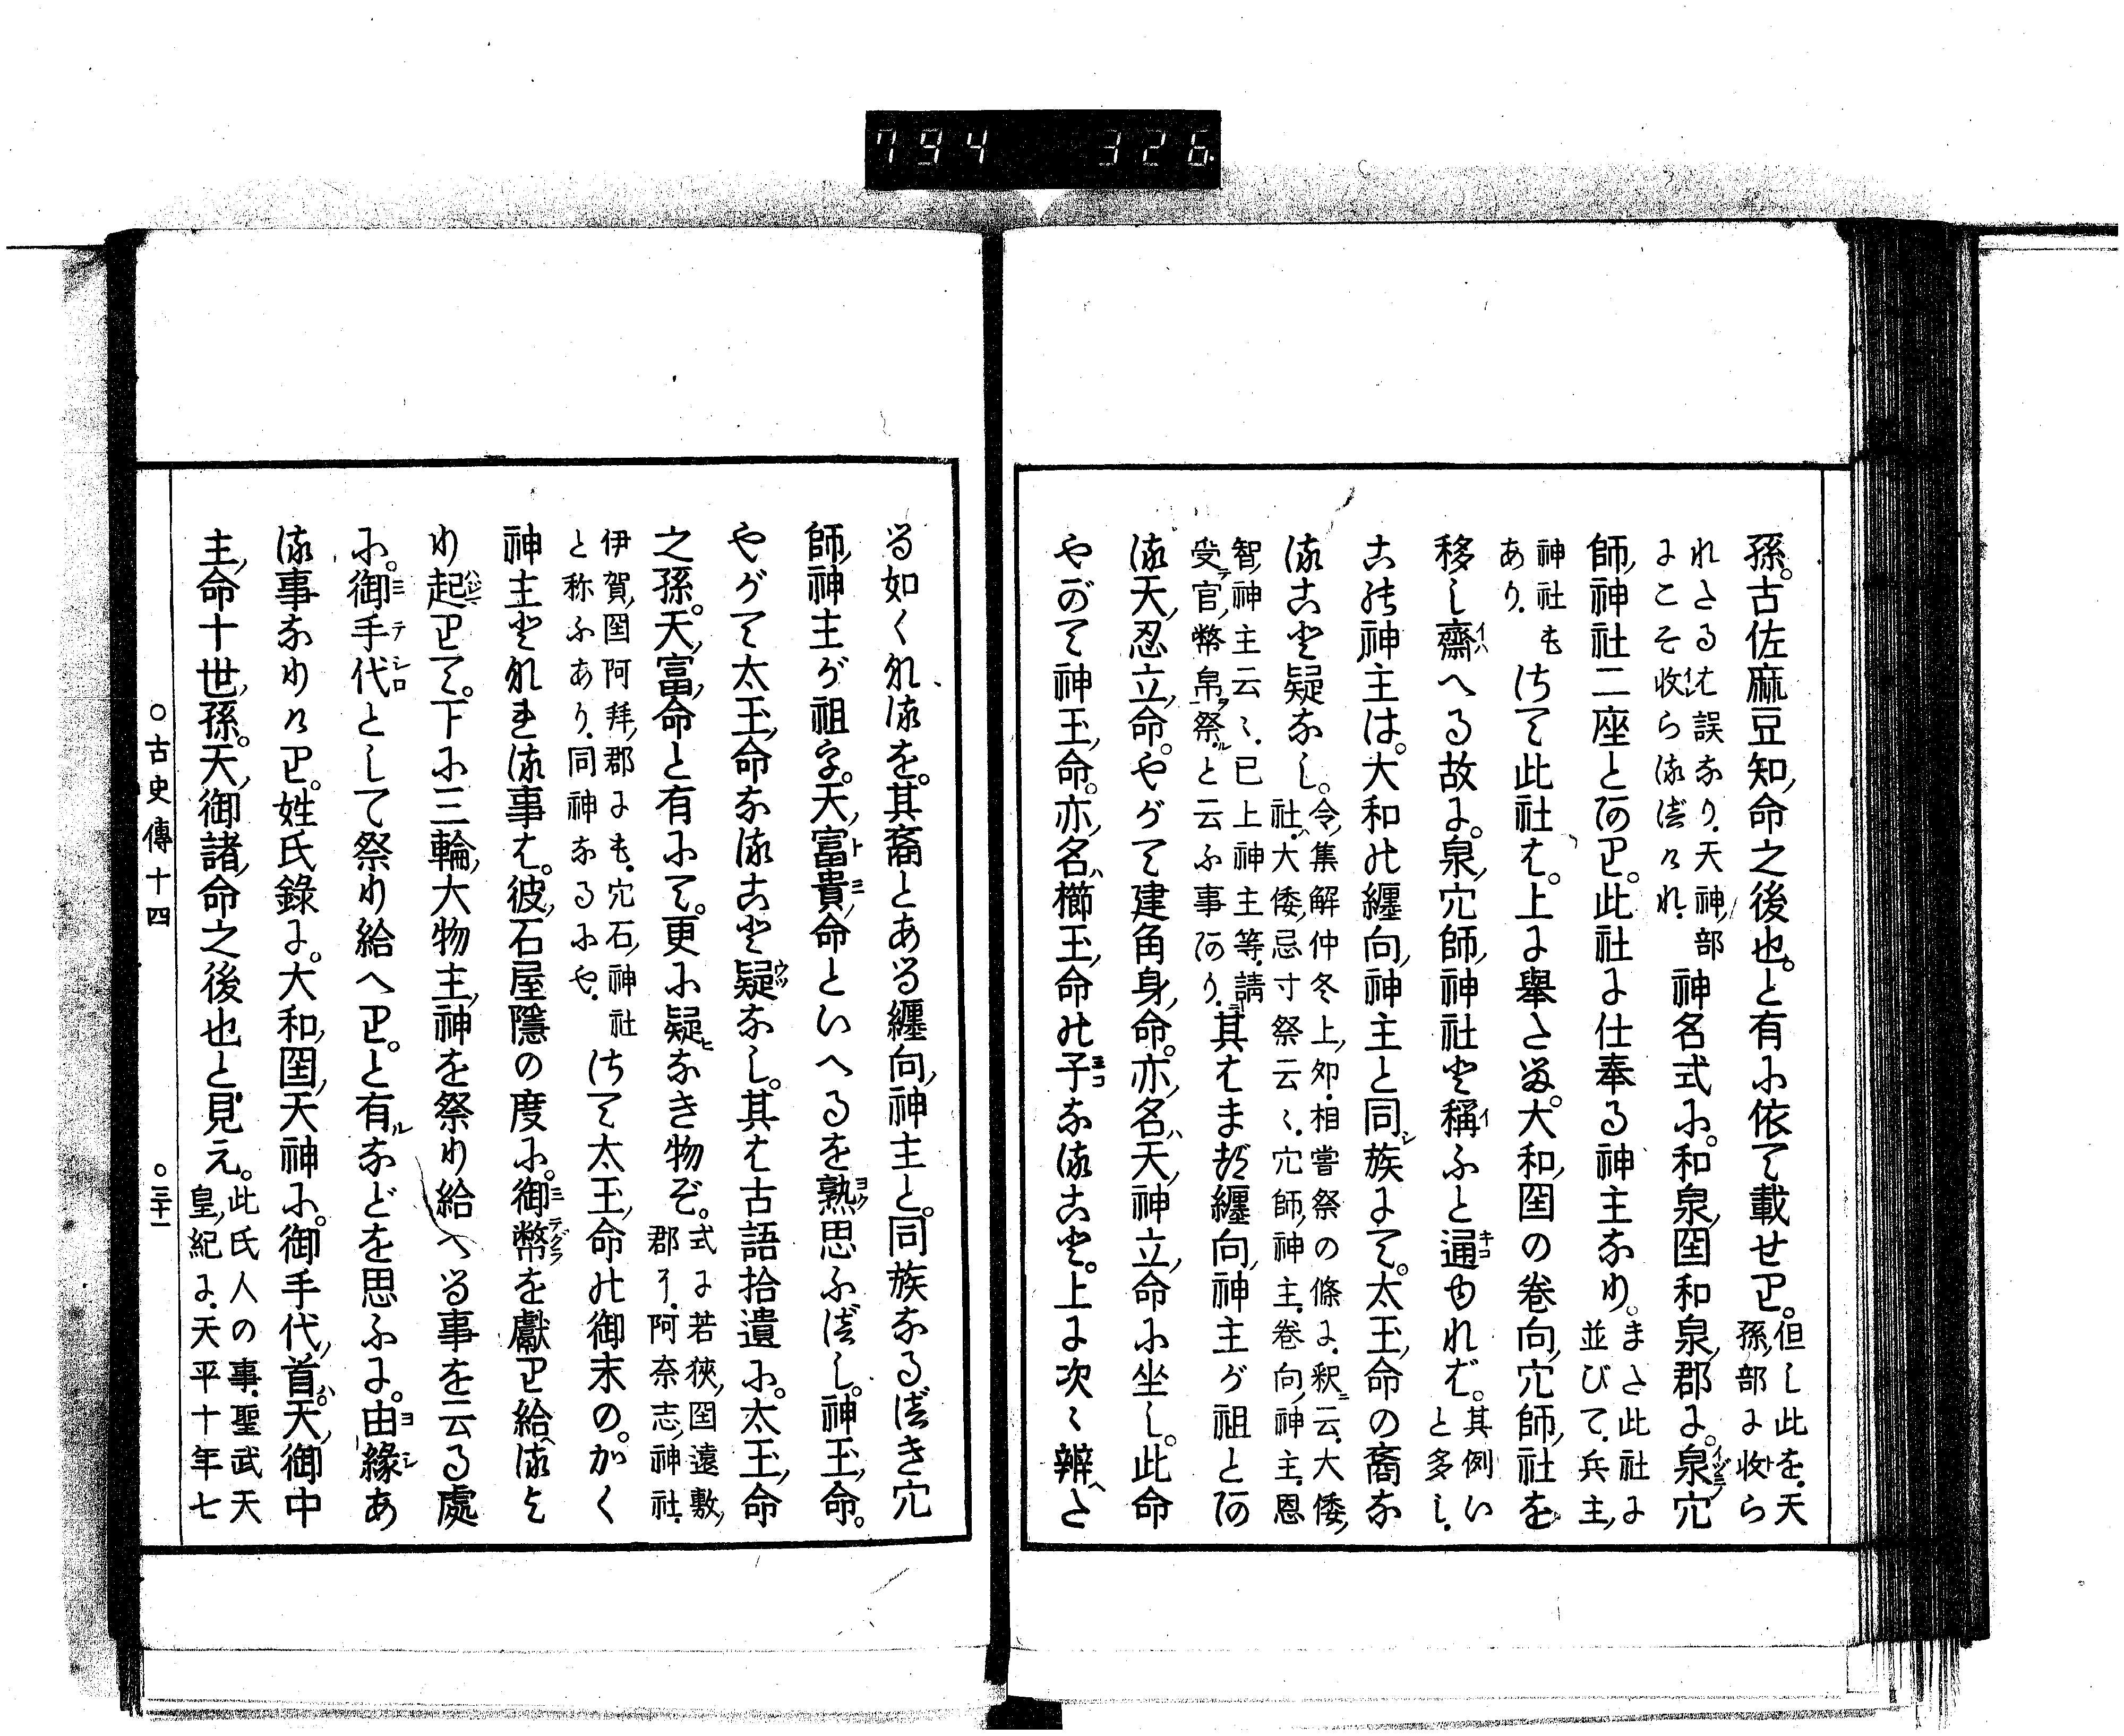 794 326
孫。古佐麻豆知命之後也。と有ふ依て載せり。但し此を、天孫部に收ら
れたるは誤なり。天神部にこそ收らるべけれ。神名式ふ。和泉國和泉郡に。泉穴
師神社二座とあり。此社に仕奉る神主なり。また此社に並びて、兵主
神社もあり。さて此社は。上に擧たる。大和國の卷向穴師社を
移し齋へる故に。泉穴師神社と稱ふと通ゆれば。其例いと多し。
この神主は。大和の纏向神主と同族にて。太玉命の裔な
ること疑なし。令集解仲冬上卯相嘗祭の條に、釈云、大倭社、大倭忌寸祭云々、穴師神主、卷向神主、恩
智神主云々、已上神主等、請受官幣帛祭と云ふ事あり。其はまづ纏向神主が祖とあ
る天忍立命。やがて建角身命。亦名天神立命ふ坐し。此命
やがて神玉命。亦名櫛玉命の子なること。上に次々辨へた
る如くなるを。其裔とある纏向神主と。同族なるべき穴
師神主が祖を。天富貴命といへるを熟思ふべし。神玉命。
やがて太玉命なること疑なし。其は古語拾遺ふ。太玉命
之孫。天富命と有ふて。更ふ疑なき物ぞ。式に若狹國遠敷郡に、阿奈志神社、
伊賀國阿拜郡にも、穴石神社と称ふあり。同神なるふや。さて太玉命の御末の。かく
神主となれる事は。彼石屋隱の度ふ。御幣を獻り給へるよ
り起りて。下ふ三輪大物主神を祭り給へる事を云る處
ふ。御手代として祭り給へり。と有などを思ふに。由緣あ
る事なりけり。姓氏錄に。大和國天神ふ。御手代首。天御中
主命十世孫。天御諸命之後也と見え。此氏人の事、聖武天皇紀に、天平十年七
○古史傳十四 ○三十二